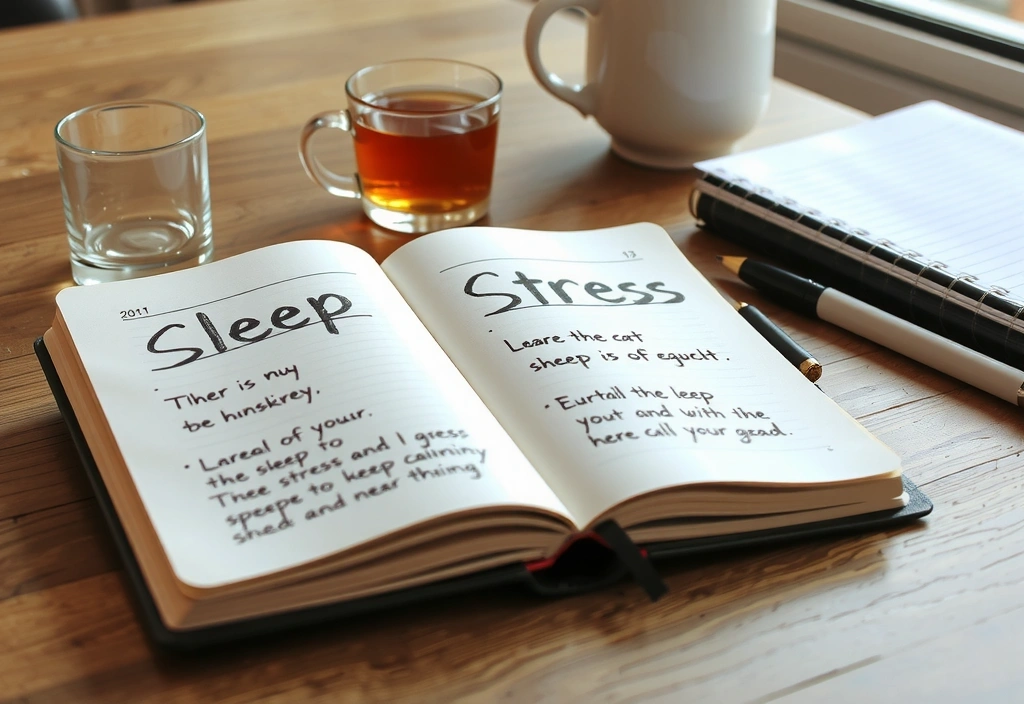 2011
Sleep
· Ther is nuy
be hinskrey,
· Lareal of youur.
the sleep to
Thee stress and I gress
speepe to keep calininy
shed and near thiimg
13
Stress
· Leare the cat
sheep is of eguclt.
· Eurtall the leep
yout and with the
here call your gead.